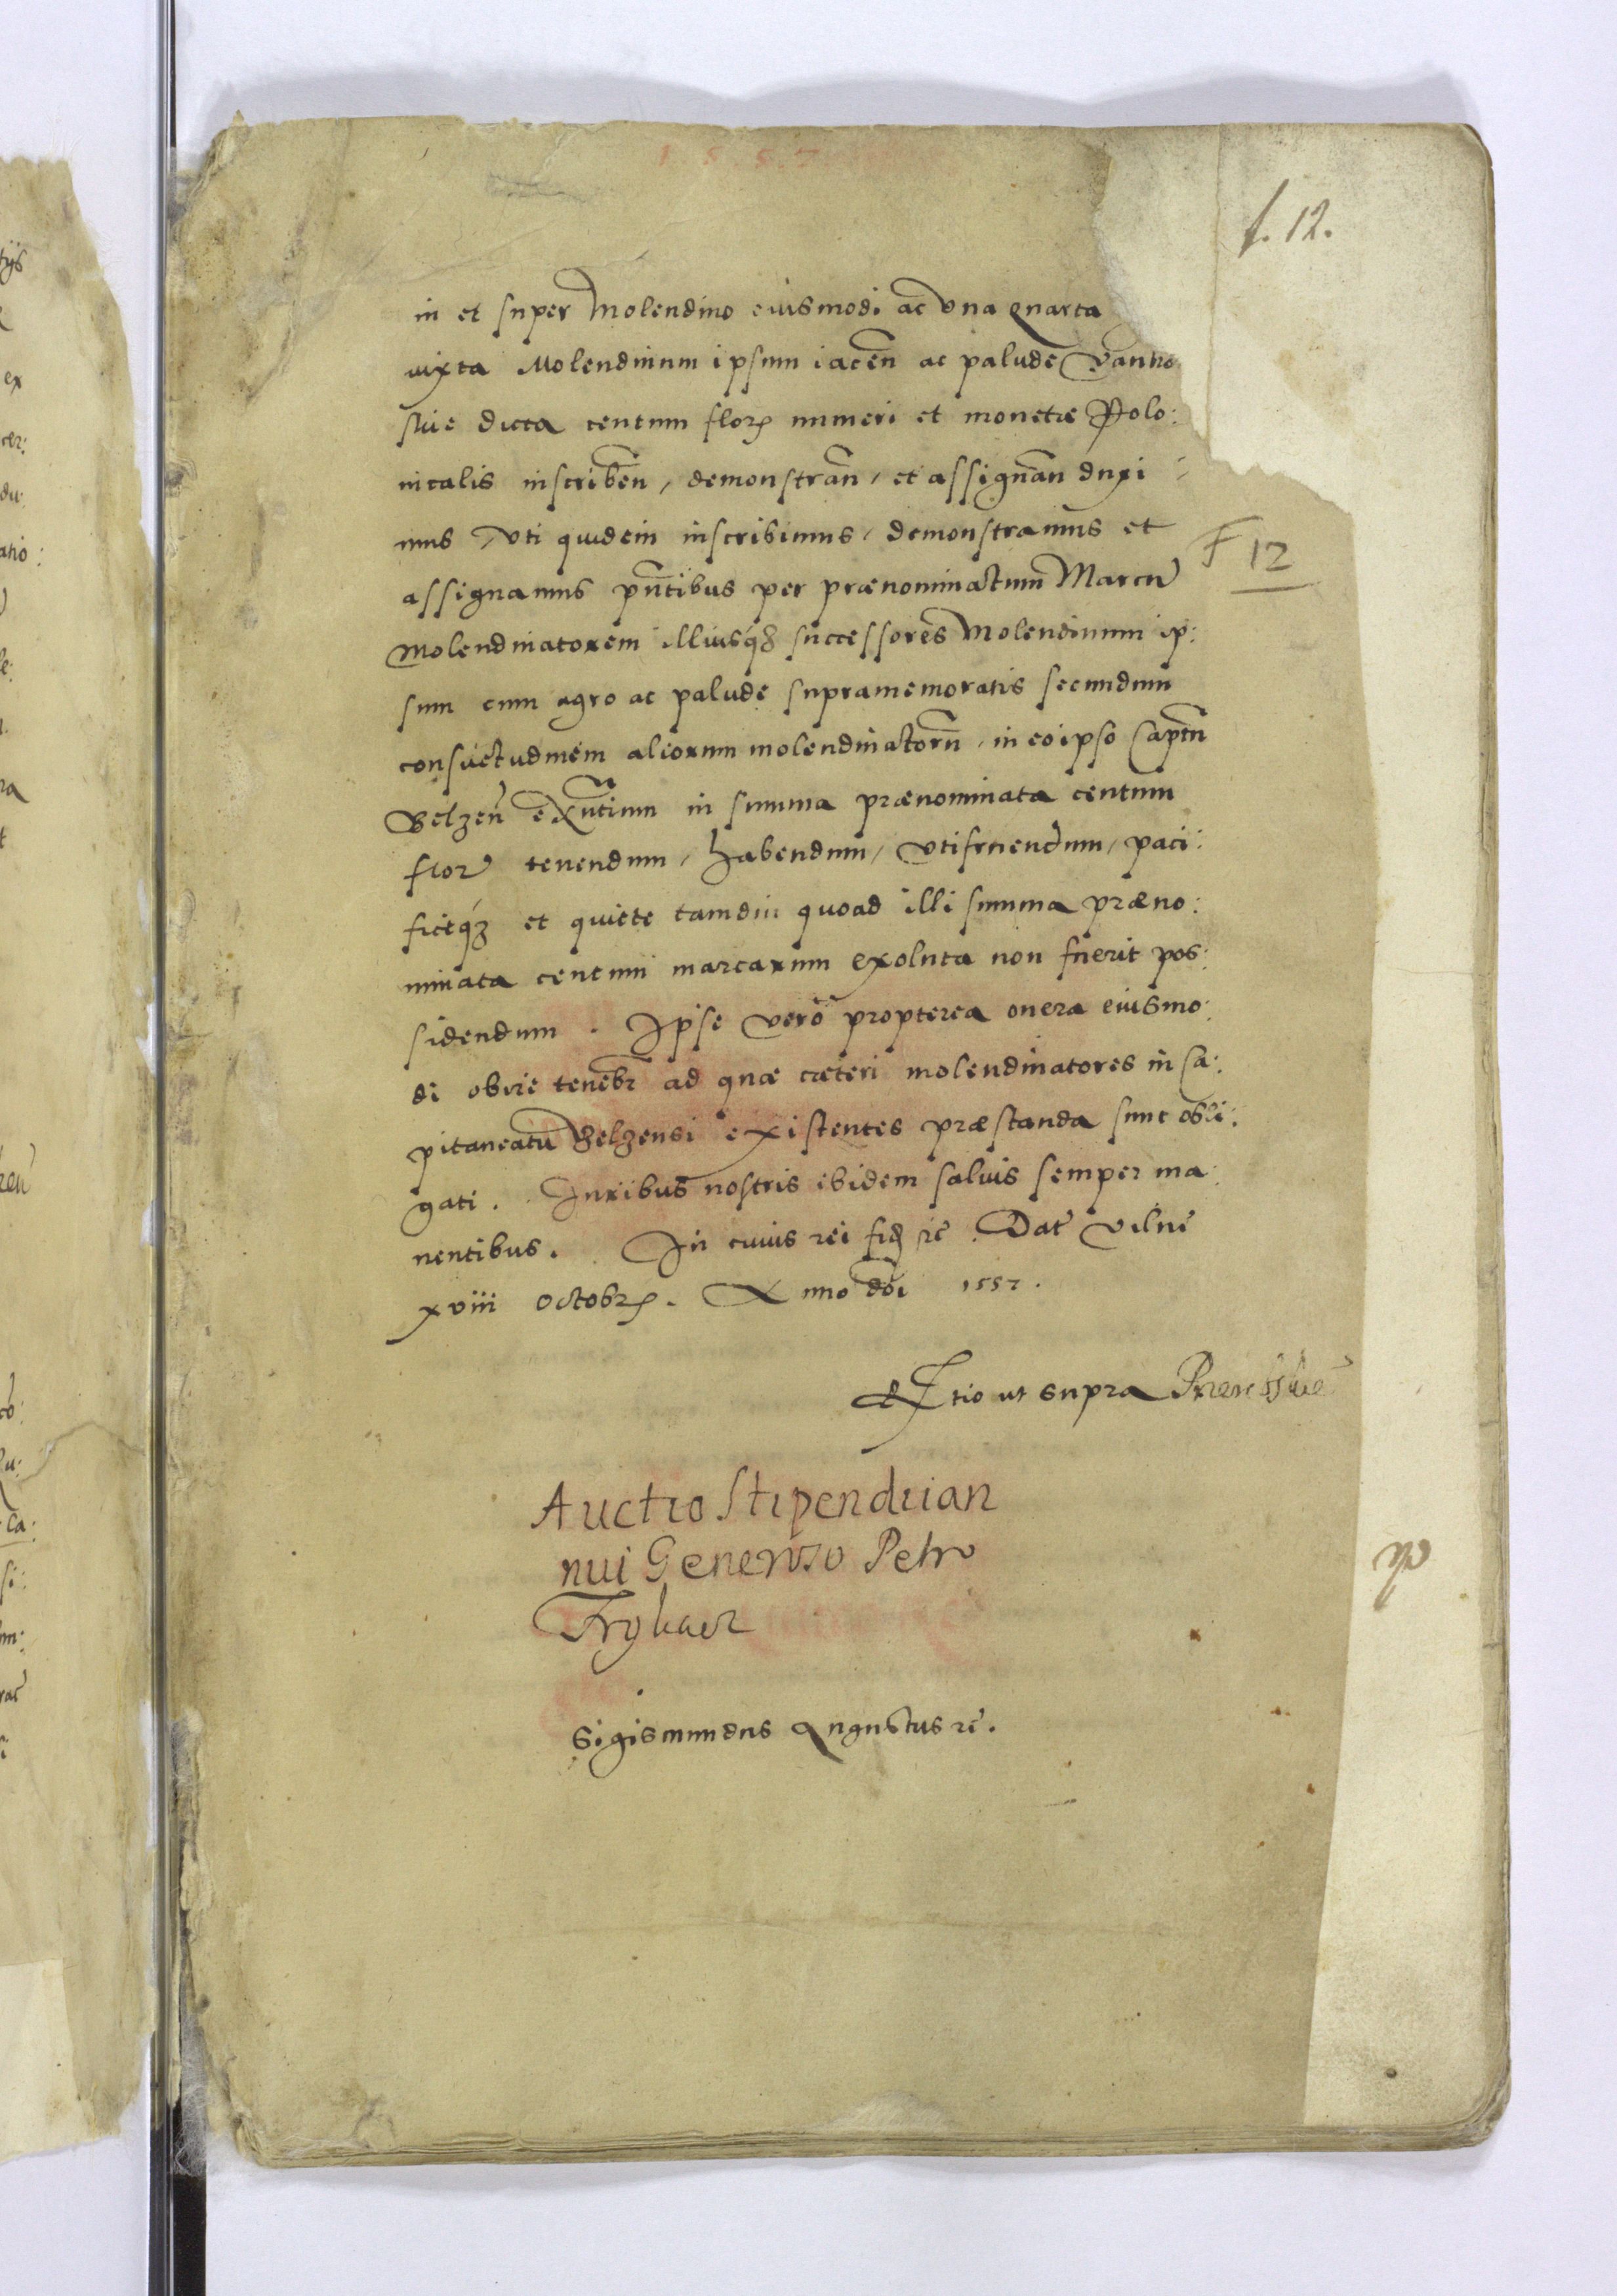 1557
f. 12.
in et super Molendino eiusmodi ac vna quarta
iuxta Molendinum ipsum iacen̄ ac palude
siue dicta centum flor numeri et monetæ Polo:
nicalis inscriben̄, demonstran̄, et assignan̄ duxi
mus, vti quidem inscribimus, demonstramus et
F 12
assignamus pn̄tibus per prænominatum Marcu
Molendinatorem illiusq3 successores Molendinum ip:
sum cum agro ac palude supramemoratis secundum
consuetudinem aliorum molendinatorū, in eo ipso Captu
Belzen̄ exn̄tium in summa prænominata centum
flor tenendum, habendum, vtifruendum, paci:
ficeq3 et quiete tamdiu quoad illi summa præno:
minata centum marcarum exoluta non fuerit pos:
sidendum. Ipse vero propterea onera eiusmo:
di obire tenebr ad quæ cæteri molendinatores in Ca:
pitaneatu Belzensi existentes præstanda sunt obli:
gati. Iuribus nostris ibidem saluis semper ma
nentibus. In cuius rei fid rc. Dat Vilne
xviii Octobr. Anno dni 1557.
ut supra
Auctio stipendiian
nui Generoso Petro
Sigismundus Augustus rc.